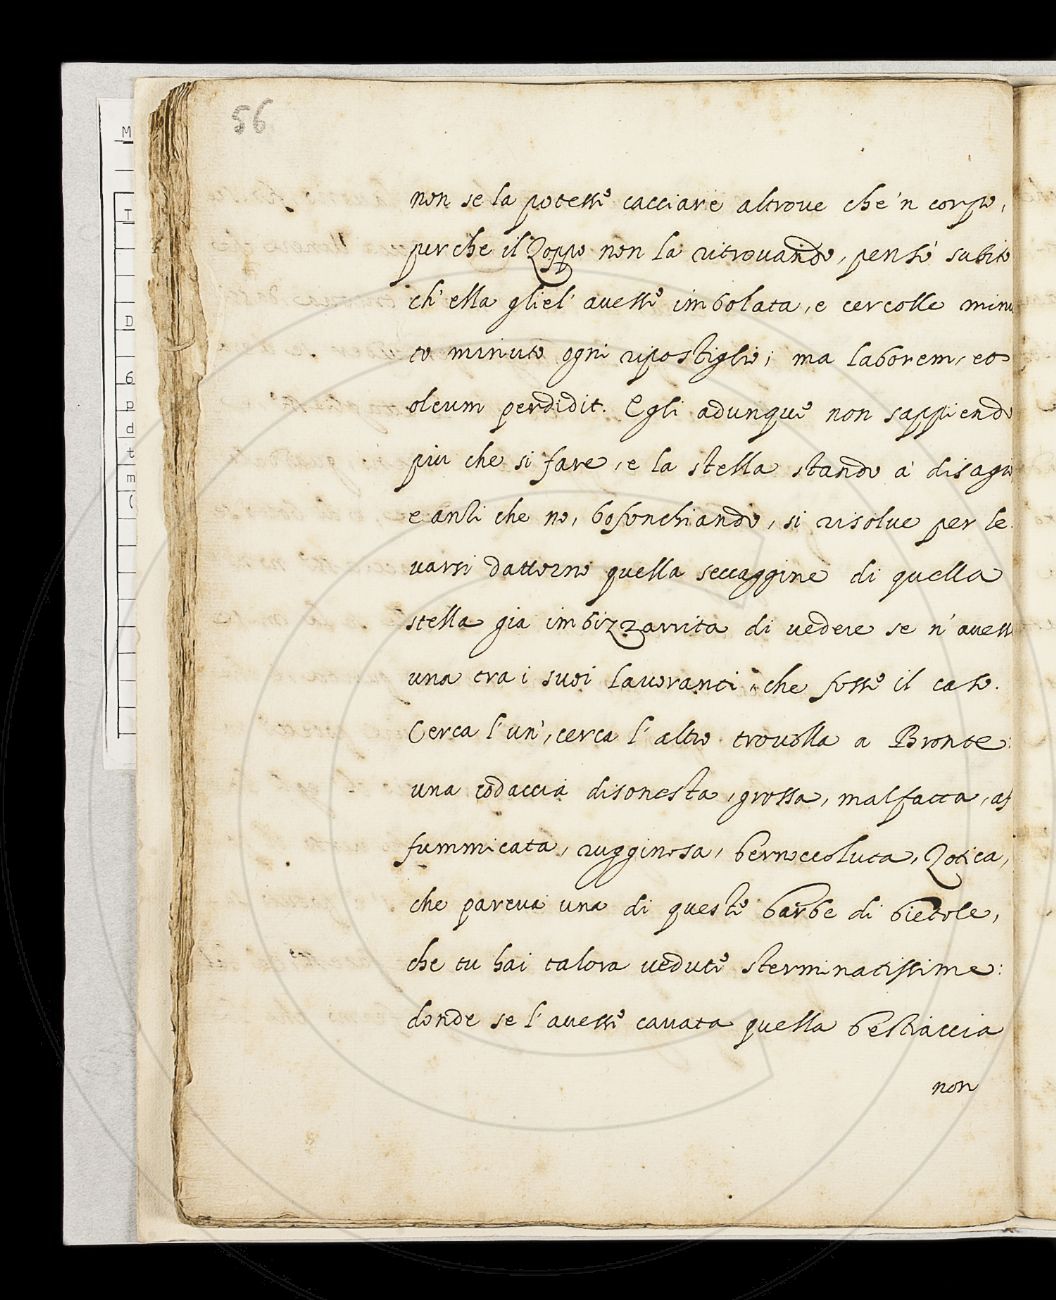 56
non se la potesse cacciare altroue che 'n corpo,
perche il Zoppo non la ritrouando, pensò subito
ch' ella gliel' auesse imbolata, e cercolle minu
to minuto ogni ripostiglio; ma laborem, et
oleum perdidit. Egli adunque non sappiendo
più che si fare, e la stella stando à disagio
e anzi che no, bofonchiando, si risolue per le
uarsi dattorno quella seccaggine di quella
stella già imbizzarrita di uedere se n' auesse
una tra i suoi lauoranti che fosse il caso.
Cerca l' un', cerca l' altro trouolla a Bronte:
una codaccia disonesta, grossa, malfatta, af
fummicata, rugginosa, bernoccoluta, Zotica,
che pareua una di queste barbe di bietole,
che tu hai talora uedute sterminatissime:
donde se l' auesse cauata quella bestiaccia
non
M
T
D
6
p
d
t
m